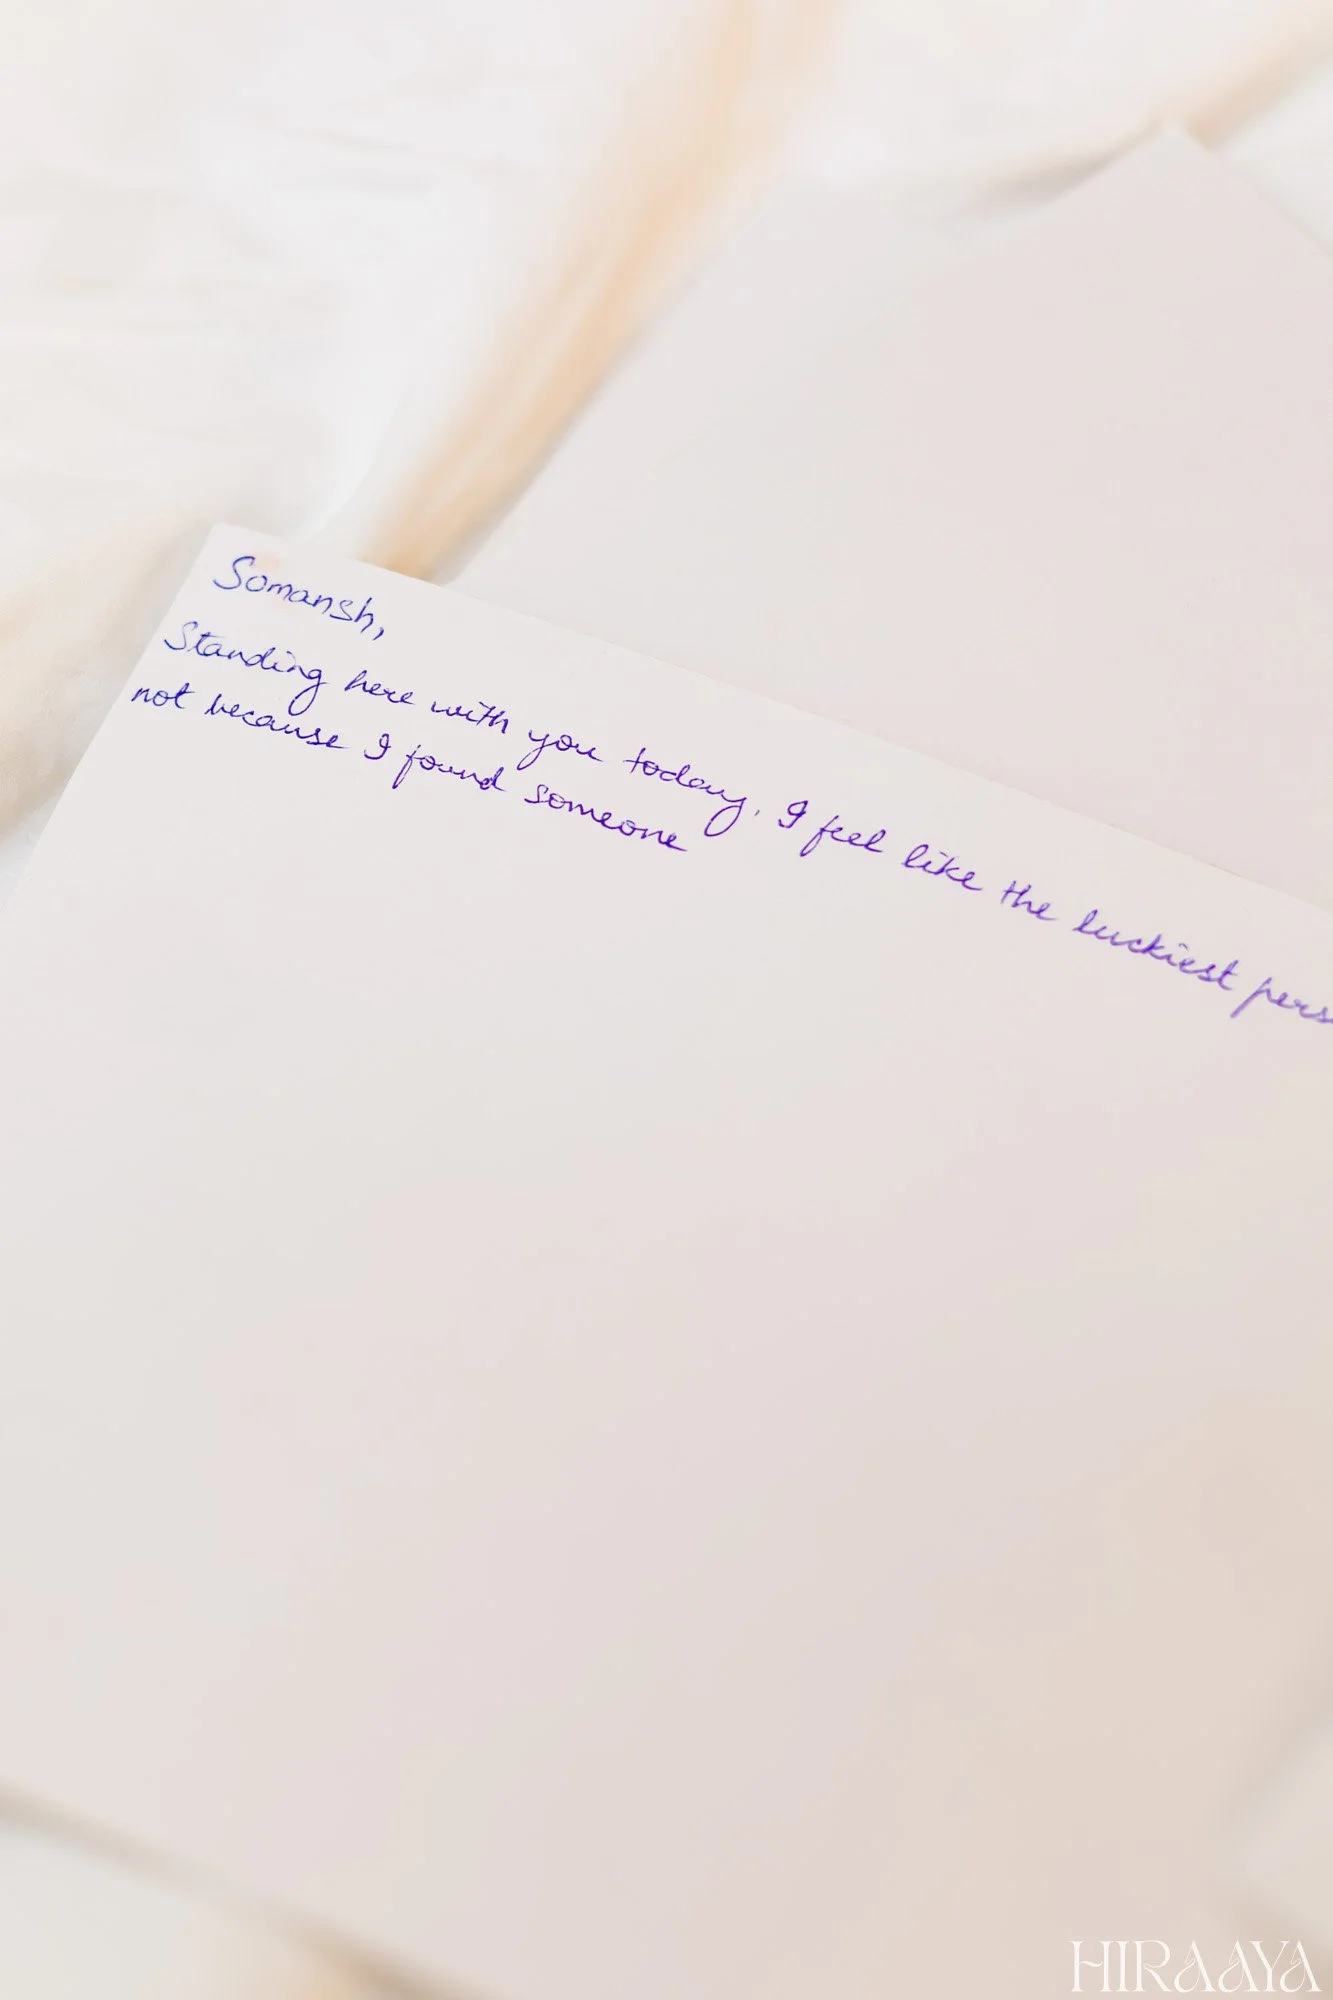 Somansh,
Standing here with you today, I feel like the luckiest
not because I found someone
HIRAAYA